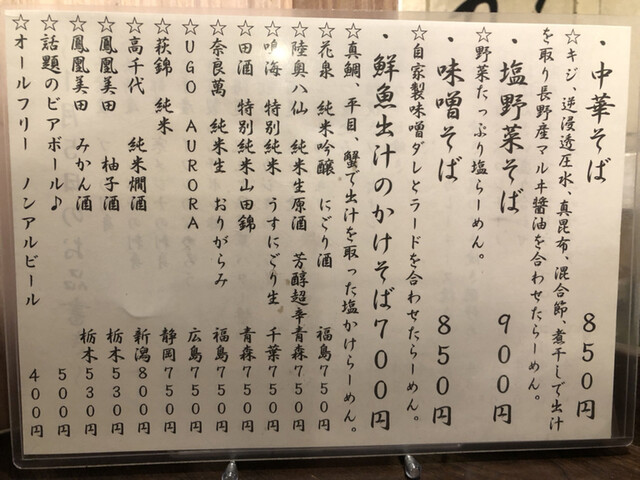 ・中華そば 850円
☆キジ、逆浸透圧水、真昆布、混合節、煮干しで出汁
を取り長野産マルヰ醬油を合わせたらーめん。
・塩野菜そば 900円
☆野菜たっぷり塩らーめん。
・味噌そば 850円
☆自家製味噌ダレとラードを合わせたらーめん。
・鮮魚出汁のかけそば700円
☆真鯛、平目、蟹で出汁を取った塩かけらーめん。
☆花泉 純米吟醸 にごり酒 福島750円
☆陸奥八仙 純米生原酒 芳醇超辛青森750円
☆鳴海 特別純米 うすにごり生 千葉750円
☆田酒 特別純米山田錦 青森750円
☆奈良萬 純米生 おりがらみ 福島750円
☆UGO AURORA 広島750円
☆萩錦 純米 静岡750円
☆高千代 純米燗酒 新潟800円
☆鳳凰美田 柚子酒 栃木530円
☆鳳凰美田 みかん酒 栃木530円
☆話題のビアボール♪ 500円
☆オールフリー ノンアルビール 400円